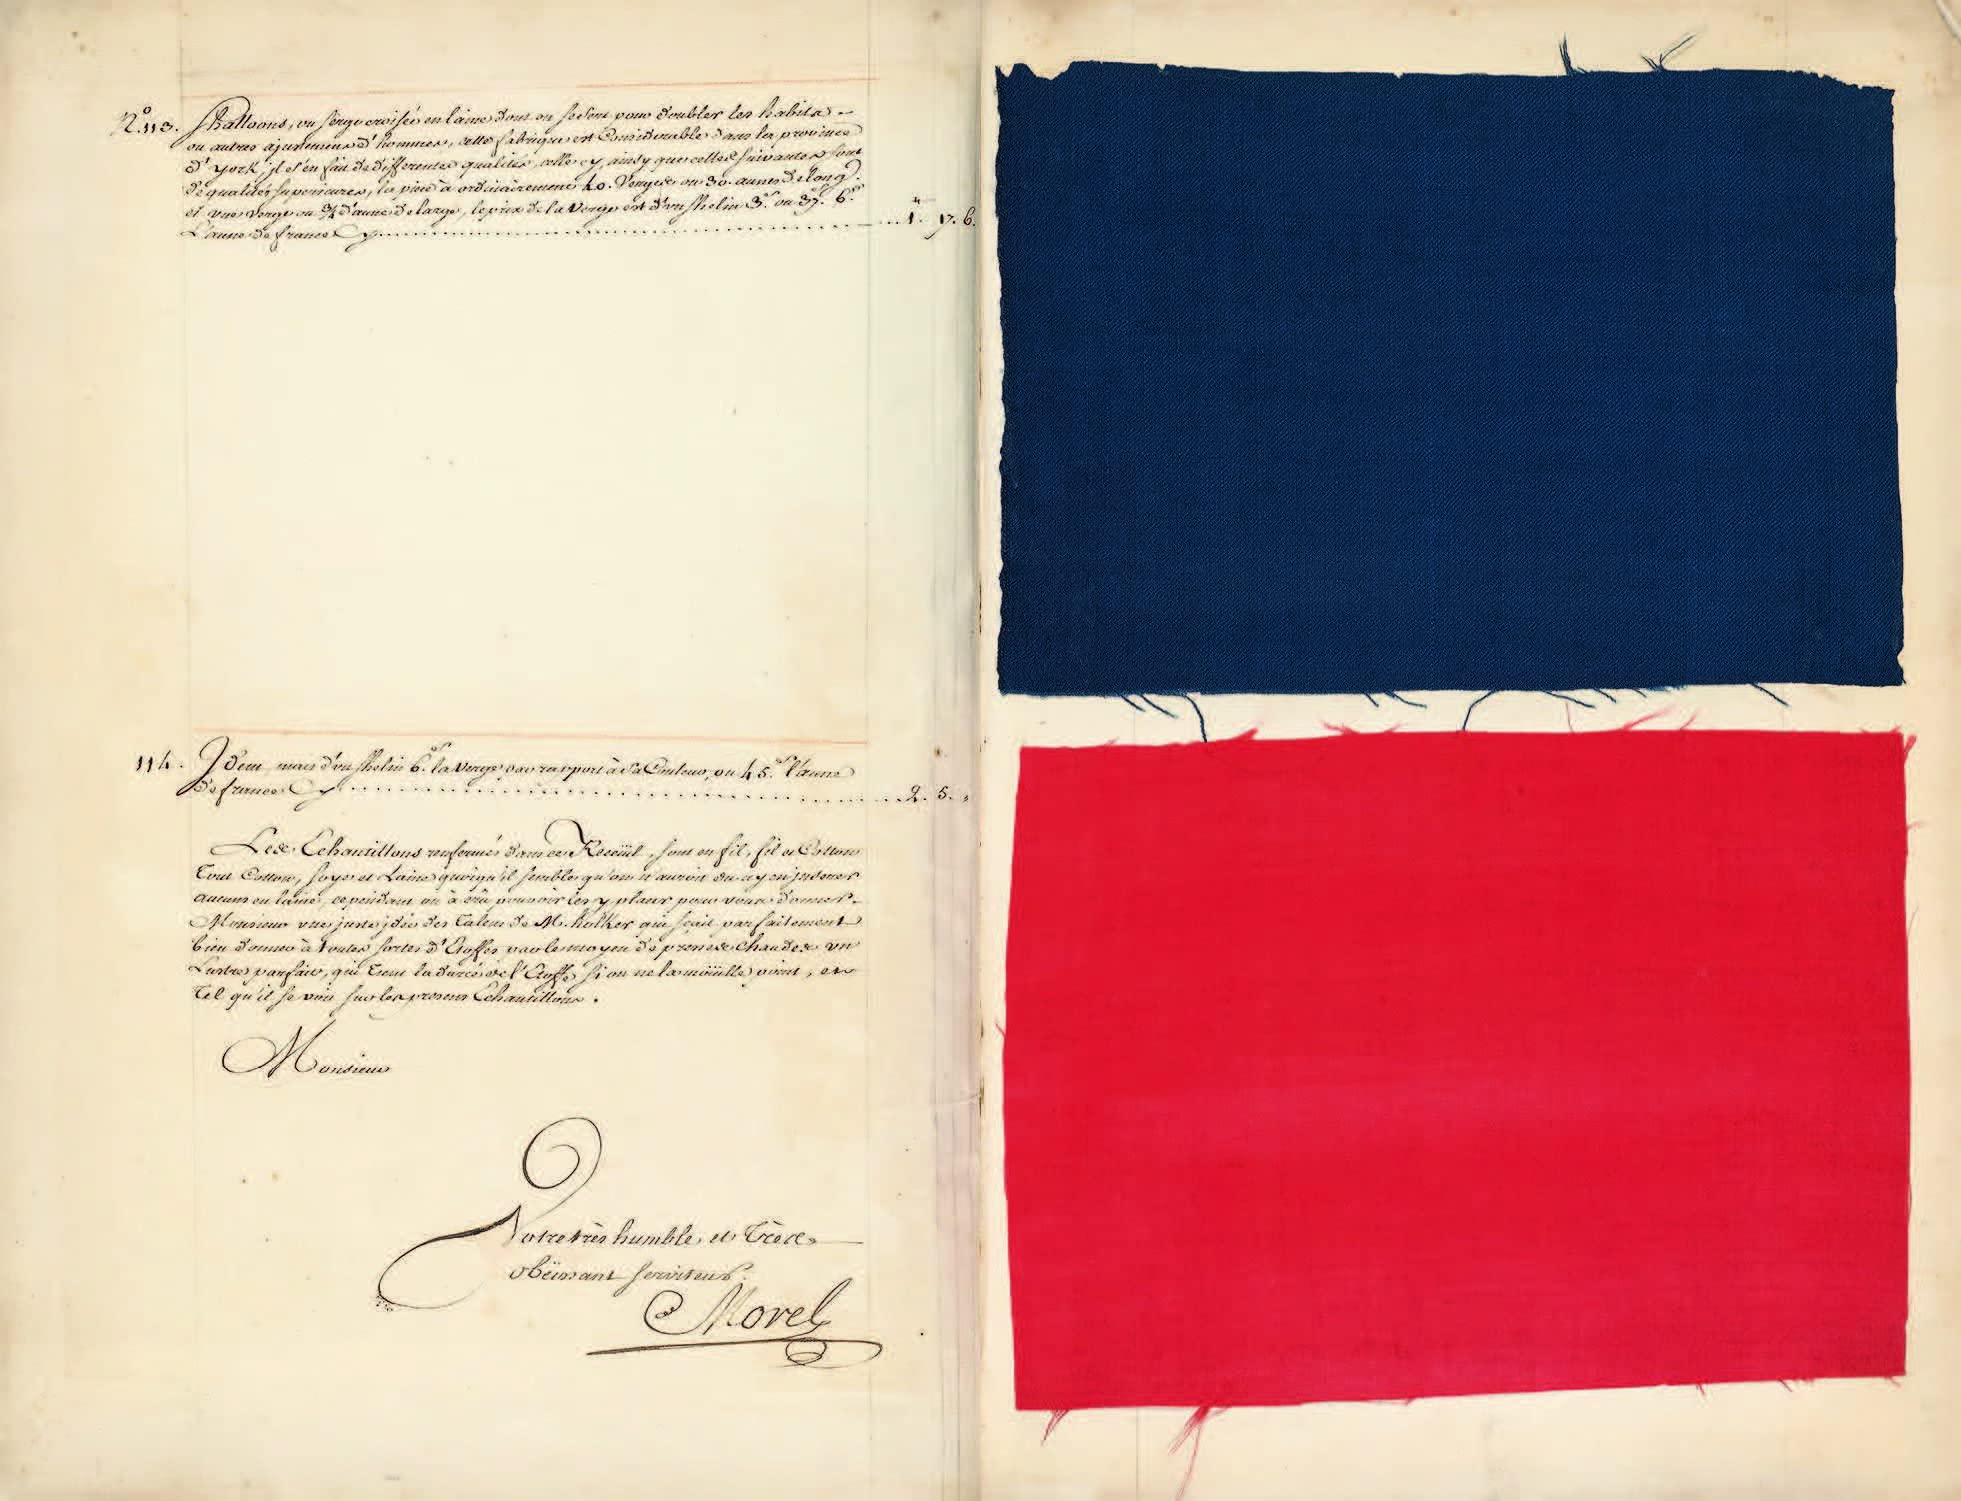 N.º 113. Shalloons, ou serge croisée en laine dont on se sert pour doubler les habits
ou autres ajustemens d'hommes, cette fabrique est Considerable dans la province
d'york, jl s'en fait de differentes qualités, celle cy, ainsy que celles suivantes sont
de qualités superieures, la piece à ordinairement 40. Verges ou 30. aunes de long
et une verge ou ¾ d'aune de large, le prix de la Verge est d'un shelin 3.ds ou 37.s 6.ds
L'aune de france Cy .... 1.tt 17. 6.
114. Jdem, mais d'un shelin 6.ds la Verge par rapport à sa Couleur, ou 45.s l'aune
de france Cy .... 2. 5. "
Les Echantillons renfermés dans ce Recüeil, sont en fil, fil et Cotton
Tout Cotton, soye et Laine quoiqu'il semble qu'on n'auroit du n'y en jnserer
aucuns en laine, cependant on à crû pouvoir les y placer pour vous donner
Monsieur une juste jdée des Talens de M. holker qui sçait parfaitement
bien donner à toutes sortes d'Etoffes par le moyen de presses chaudes un
Lustre parfait, qui tient la durée de l'Etoffe si on ne la moüille point, et
Tel qu'il se voit sur les presens Echantillons.
Monsieur
Votre très humble et Très
obëissant serviteur.
Morel